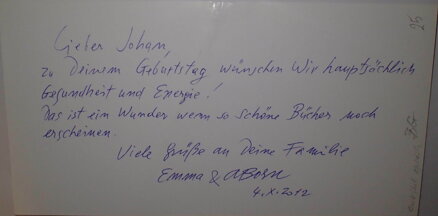 Lieber Johan,
zu Deinem Geburtstag wünschen wir hauptsächlich
Gesundheit und Energie!
Das ist ein Wunder wenn so schöne Bücher noch
erscheinen.
Viele Grüße an Deine Familie
Emma &
4.X.2012